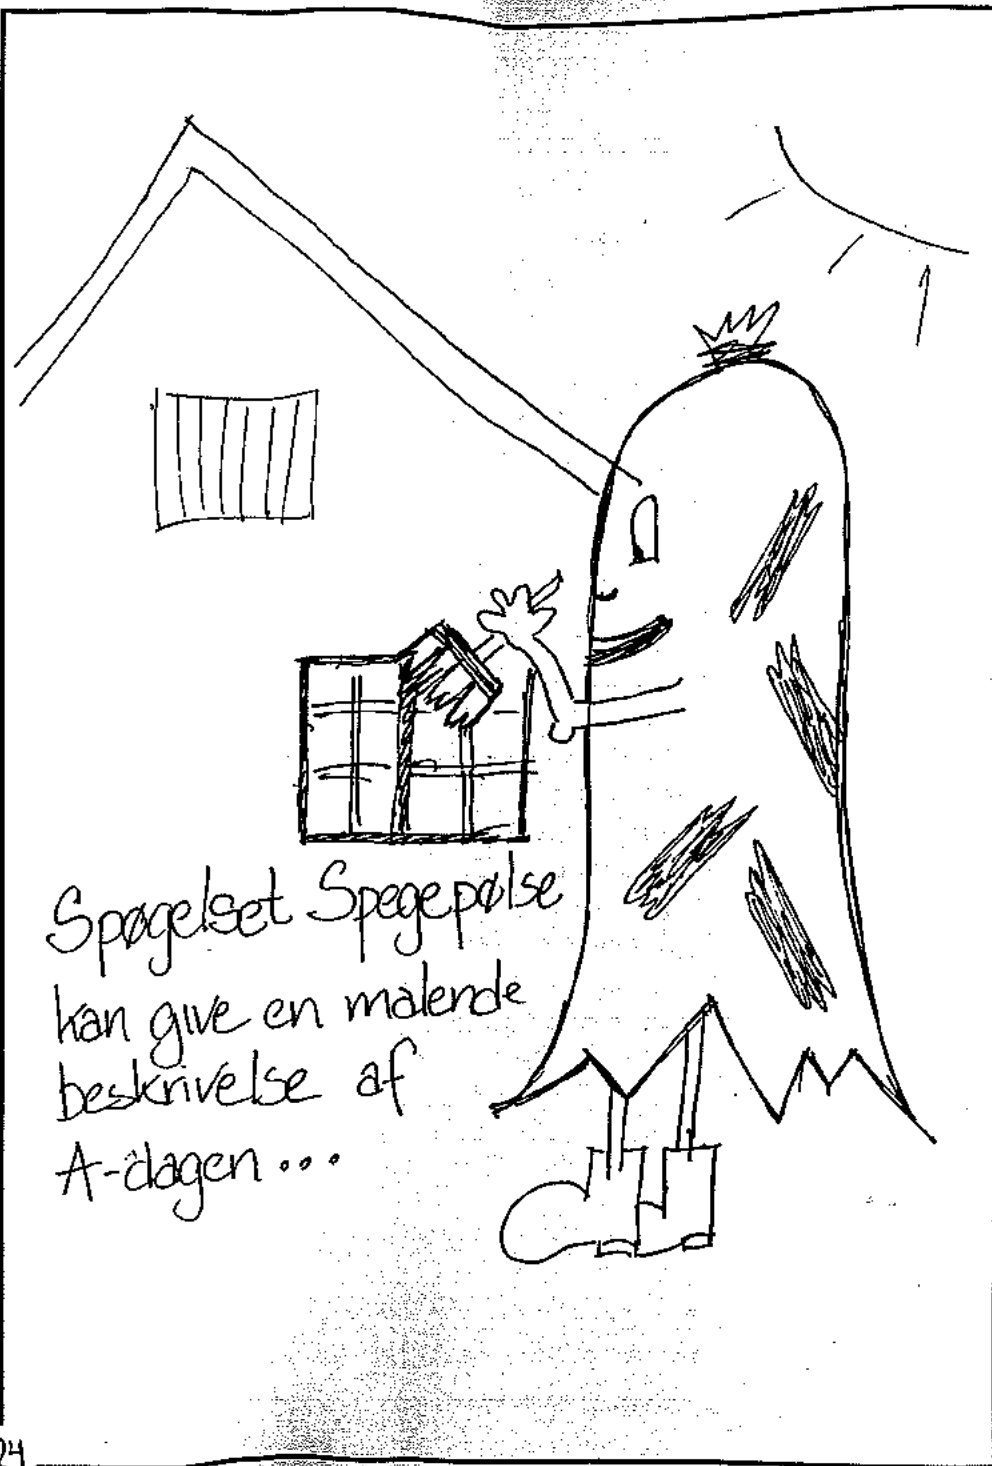 Spøgelset Spegepølse
kan give en malende
beskrivelse af
A-dagen...
24